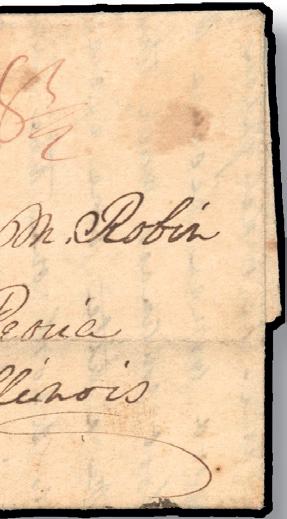 8 3/2
M. Robin
Peoria
llinois